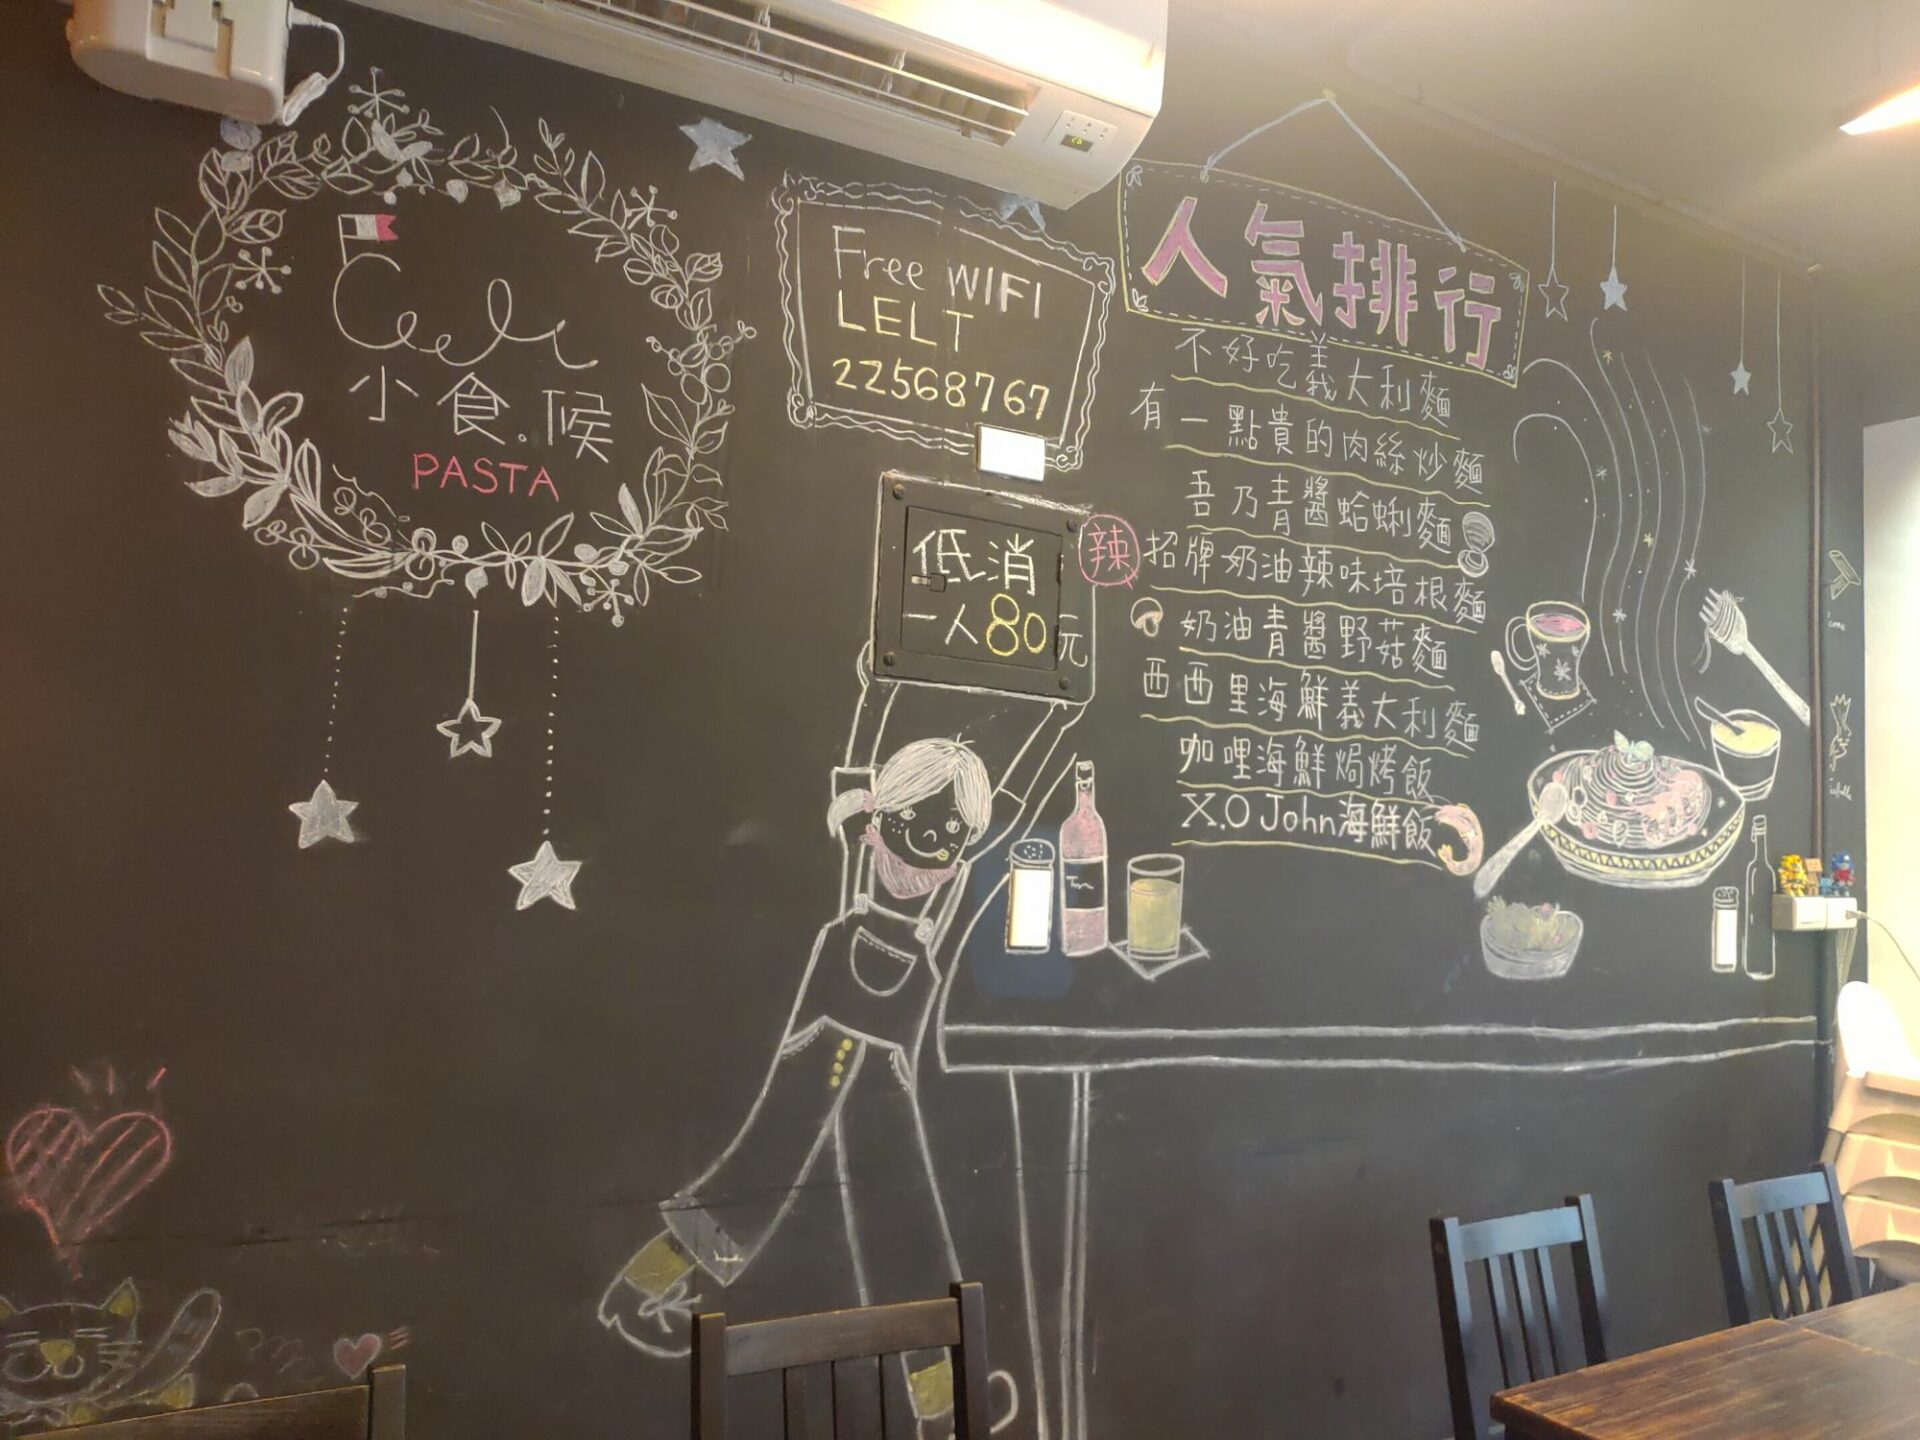 小食.候
PASTA
Free WIFI
LELT
22568767
低消
一人80元
人氣排行
不好吃義大利麵
有一點貴的肉絲炒麵
吾乃青醬蛤蜊麵
辣 招牌奶油辣味培根麵
奶油青醬野菇麵
西西里海鮮義大利麵
咖哩海鮮焗烤飯
X.O John海鮮飯